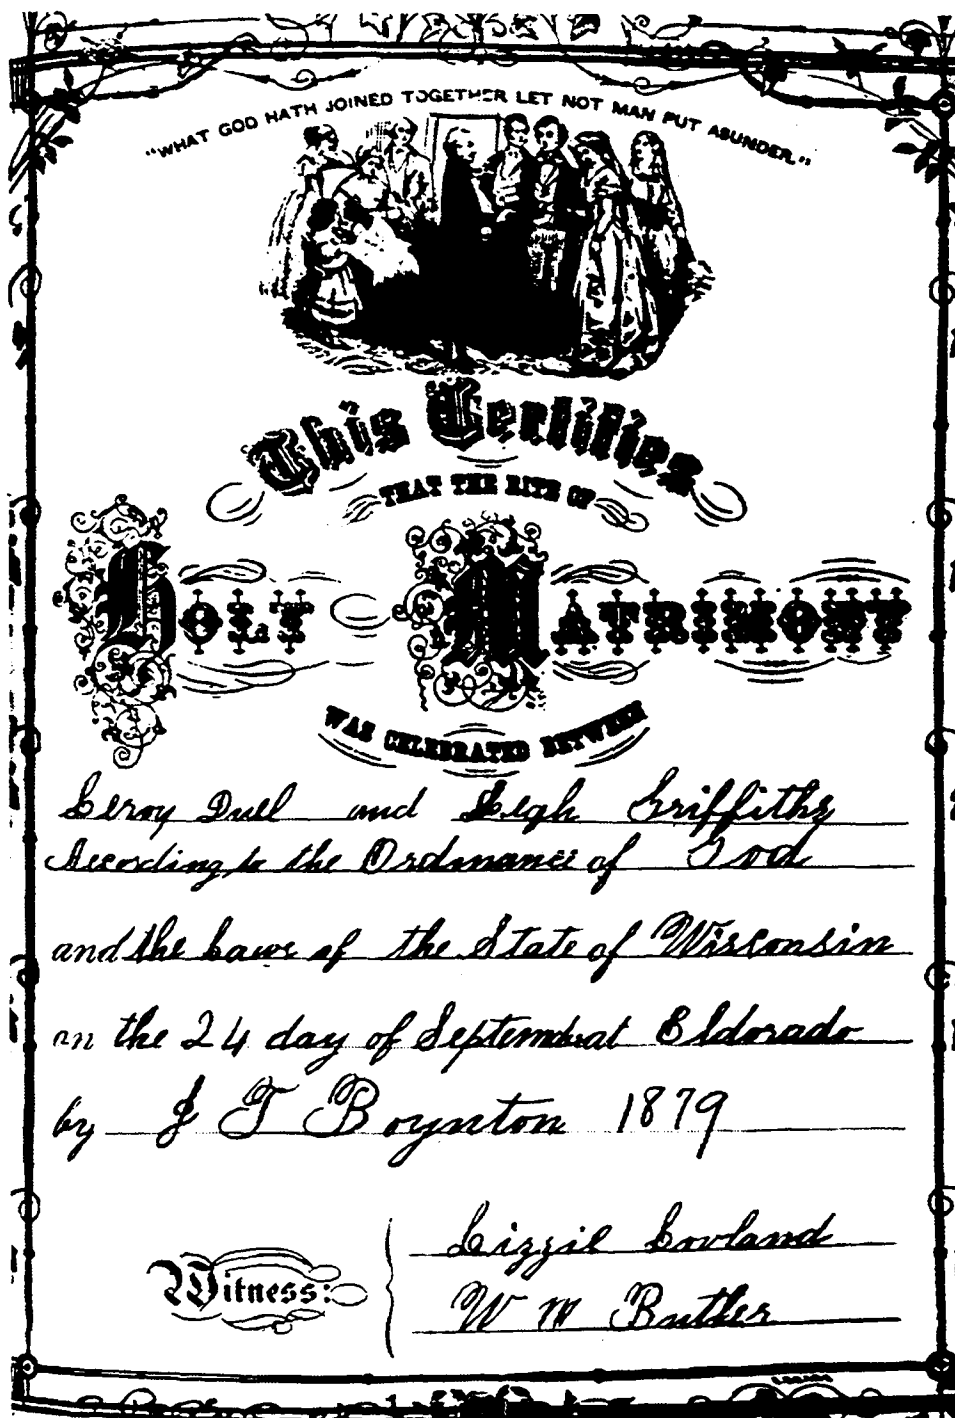 "WHAT GOD HATH JOINED TOGETHER LET NOT MAN PUT ASUNDER."
This Certifies
THAT THE RITE OF
HOLY MATRIMONY
WAS CELEBRATED BETWEEN
Leroy Duel and Leigh Griffiths
According to the Ordinance of God
and the Laws of the State of Wisconsin
on the 24 day of September at Eldorado
by J T Boynton 1879
Witness:
Lizzie Lovland
W M Butler